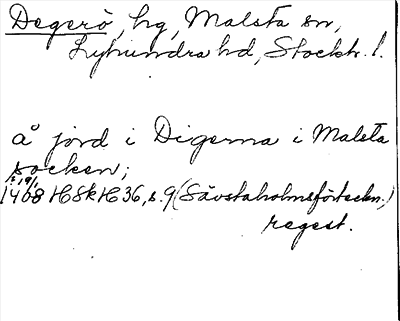 Degerö, hg, Malsta sn,
Lyhundra hd, Stockh. l.
å jord i Digerna i Malsta
socken;
1408 HSkH 36, s. 9 (Sävstaholmsförteckn.)
regest.